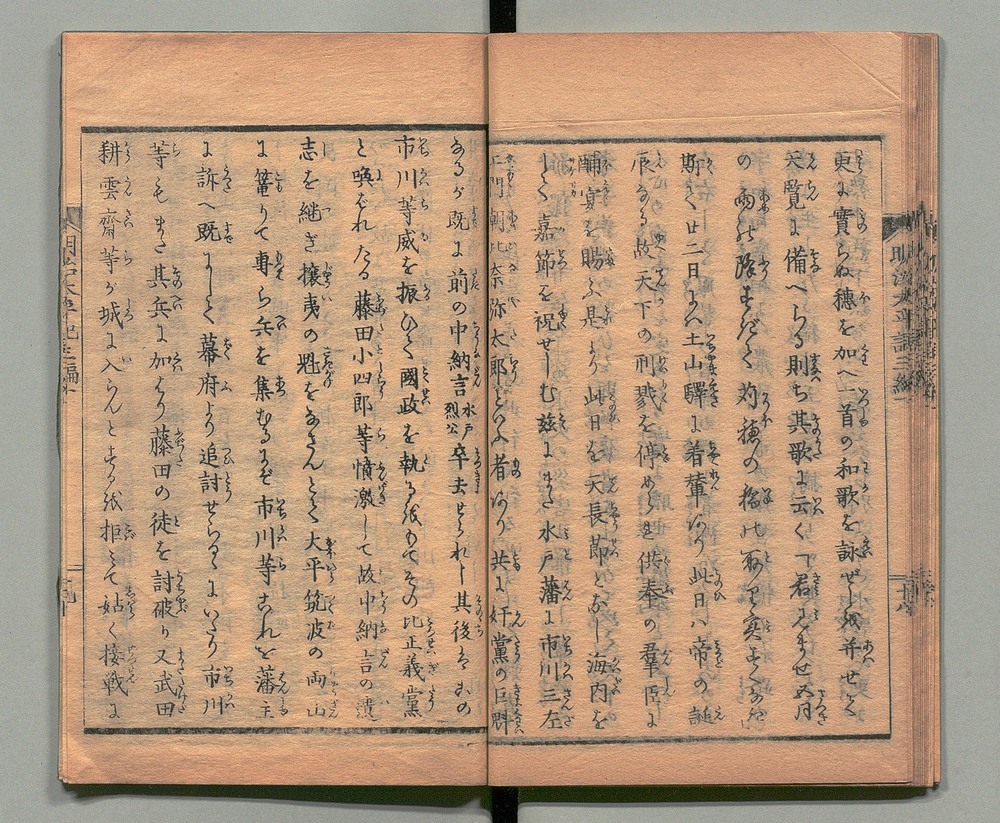 更に實らぬ穗を加へ一首の和歌を詠ぜしを并せて
天覧に備へらる則ち其歌に云く「君見ませ五月
の雨の降すぎて苅穗の稲の
斯て廿二日には土山驛に着輦あり此日ハ帝の誕
辰なる故天下の刑戮を停められ供奉の羣臣に
酺宴を賜ふ是より此日を天長節となし海内を
して嘉節を祝せしむ茲にまた水戸藩に市川三左
エ門朝比奈弥太郎といふ者あり共に奸黨の巨魁
なるが既に前の中納言水戸烈公卒去せられし其後はかの
市川等威を振ひて國政を執るをもてその比正義黨
と喚ばれたる藤田小四郎等憤激して故中納言の遺
志を継ぎ攘夷の魁をなさんとて大平筑波の両山
に篭りて専ら兵を集むるにぞ市川等これを藩主
に訴へ既にして幕府より追討せらるゝにいたり市川
等もまた其兵に加はり藤田の徒を討破り又武田
耕雲齋等が城に入らんとするを拒みて姑く接戦に
明治太平記三編
十八